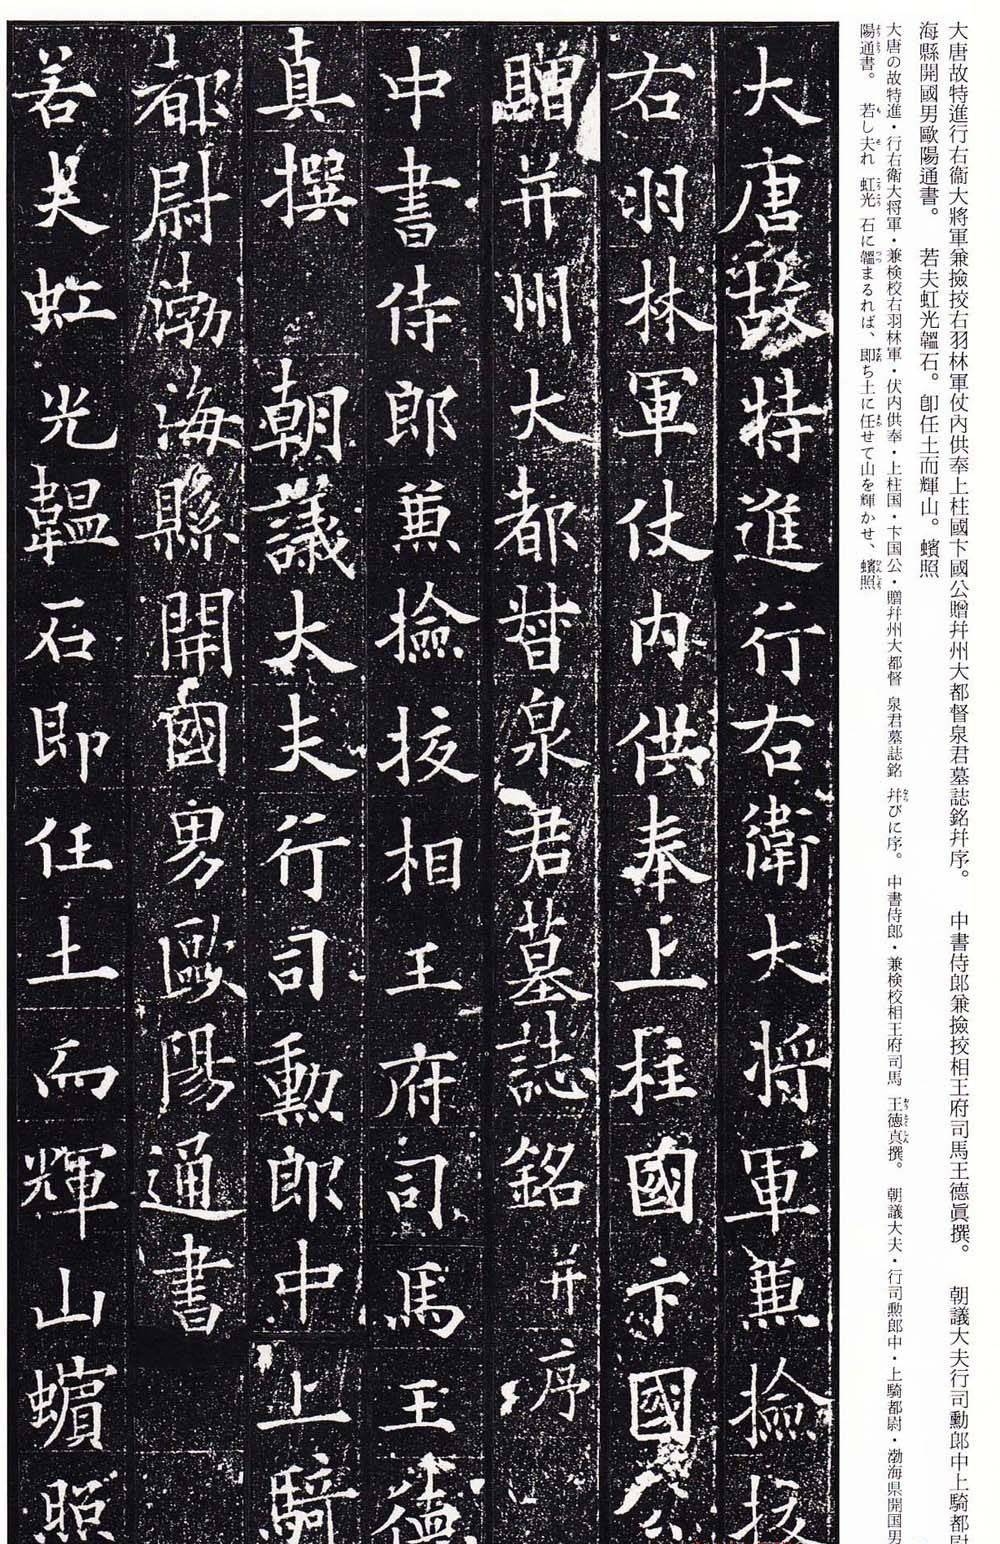 大唐故特進行右衞大將軍兼撿挍右羽林軍仗内供奉上柱國卞國公贈幷州大都督泉君墓誌銘幷序。　中書侍郎兼撿挍相王府司馬王德眞撰。　朝議大夫行司勳郎中上騎都尉
海縣開國男歐陽通書。　若夫虹光韞石。卽任土而輝山。蠙照
大唐の故特進・行右衛大将軍・兼検校右羽林軍・仗内供奉・上柱国・卞国公・贈幷州大都督　泉君墓誌銘　幷びに序。　中書侍郎・兼検校相王府司馬　王徳真撰。　朝議大夫・行司勲郎中・上騎都尉・渤海県開国男
陽通書。　若し夫れ　虹光　石に韞まるれば、即ち土に任せて山を輝かせ、蠙照
大唐故特進行右衛大将軍兼撿挍
右羽林軍仗内供奉上柱國卞國公
贈并州大都督泉君墓誌銘并序
中書侍郎兼撿挍相王府司馬王德
真撰　朝議大夫行司勳郎中上騎
都尉渤海縣開國男歐陽通書
若夫虹光韞石即任土而輝山蠙照